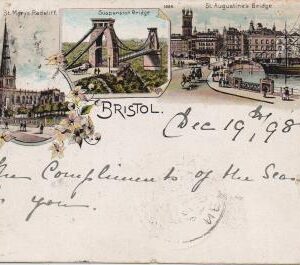 St Mary's Redcliff.
Suspension Bridge
St Augustine's Bridge
BRISTOL.
Dec 19th, 98
The Compliments of the Sea
to you.